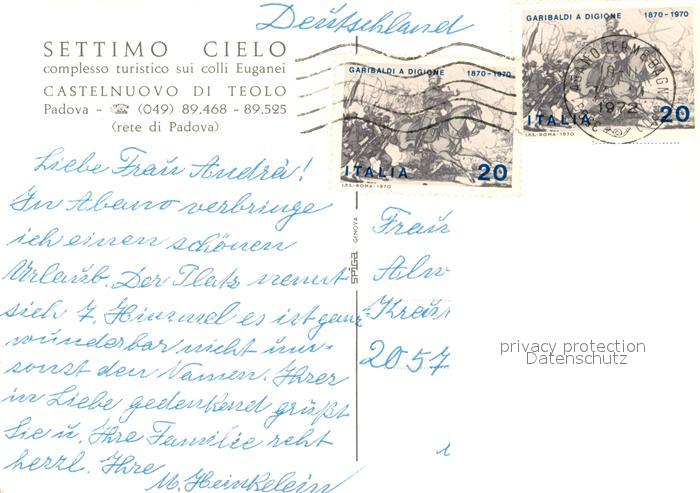 Deutschland
SETTIMO CIELO
complesso turistico sui colli Euganei
CASTELNUOVO DI TEOLO
Padova - ☎ (049) 89.468 - 89.525
(rete di Padova)
GARIBALDI A DIGIONE 1870-1970
ITALIA 20
I.P.S.-ROMA-1970
GARIBALDI A DIGIONE 1870-1970
ITALIA 20
I.P.S.-ROMA-1970
ABANO TERME
1972
Liebe Frau Andrä!
In Abano verbringe
ich einen schönen
Urlaub. Der Platz nennt
sich 7. Himmel es ist ganz
wunderbar nicht um-
sonst den Namen. Ihrer
in Liebe gedenkend grüßt
Sie u. Ihre Familie recht
herzl. Ihre
M. Heinkelein
SPIGA GENOVA
Frau
2057
privacy protection
Datenschutz